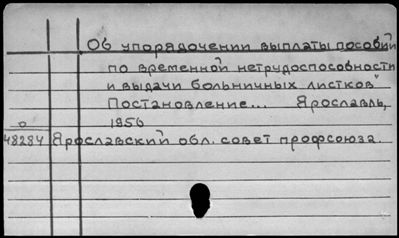 Об упорядочении выплаты пособий
по временной нетрудоспособности
и выдачи больничных листков"
Постановление... Ярославль,
1956
48284 Ярославский обл. совет профсоюза.